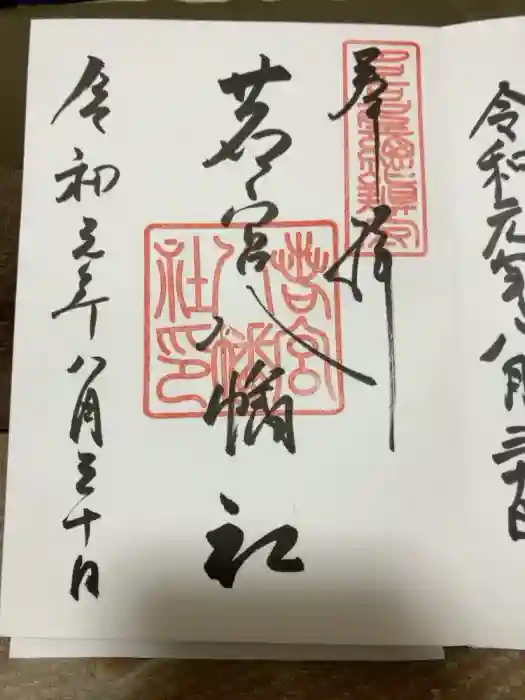 令和元年八月三十日
奉拝
若宮八幡社
若宮
八幡
社印
令和元年八月三十日